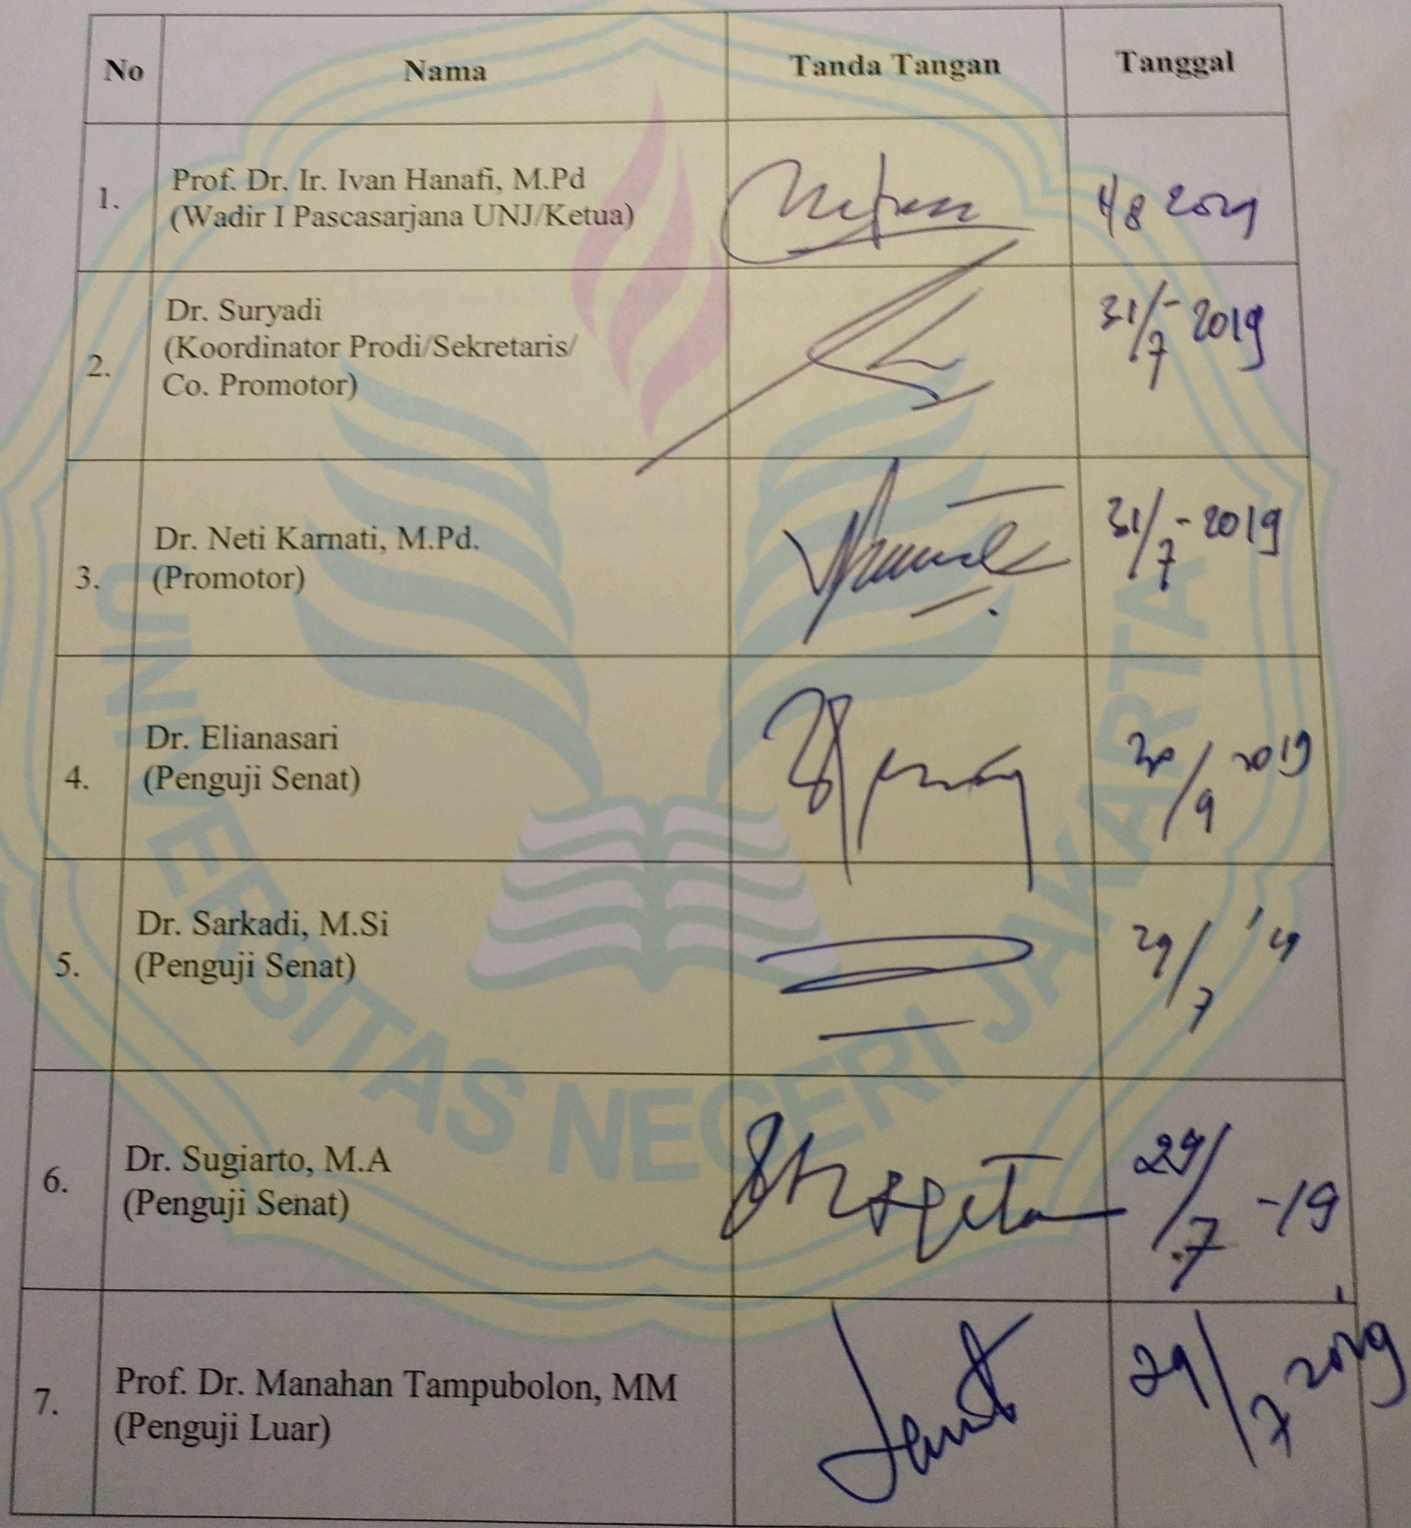 No Nama Tanda Tangan Tanggal
1. Prof. Dr. Ir. Ivan Hanafi, M.Pd
(Wadir I Pascasarjana UNJ/Ketua)
4/8 2019
2. Dr. Suryadi
(Koordinator Prodi/Sekretaris/
Co. Promotor)
31/7 - 2019
3. Dr. Neti Karnati, M.Pd.
(Promotor)
31/7 - 2019
4. Dr. Elianasari
(Penguji Senat)
30/9 2019
5. Dr. Sarkadi, M.Si
(Penguji Senat)
29/7 '19
6. Dr. Sugiarto, M.A
(Penguji Senat)
29/7 -19
7. Prof. Dr. Manahan Tampubolon, MM
(Penguji Luar)
29/7 2019
UNIVERSITAS NEGERI JAKARTA